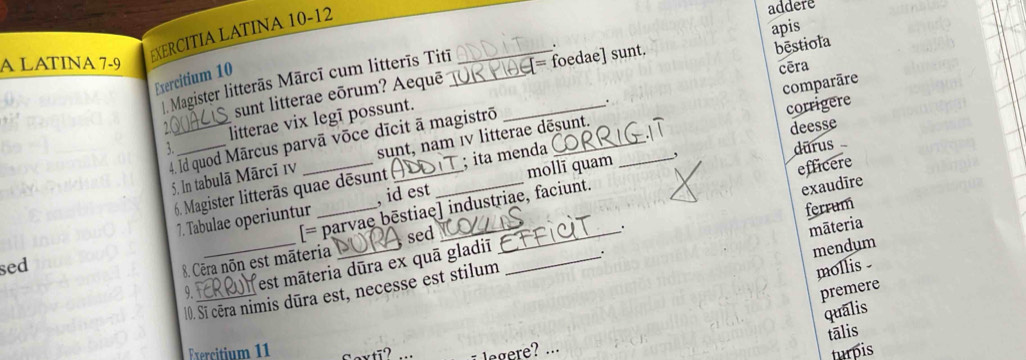 EXERCITIA LATINA 10-12
A LATINA 7-9
Exercitium 10
1. Magister litterās Mārcī cum litterīs Titī ADDIT.
2. QUALIS sunt litterae eōrum? Aequē TURPIAE [= foedae] sunt.
3. ______ litterae vix legī possunt.
4. Id quod Mārcus parvā vōce dīcit ā magistrō ______.
5. In tabulā Mārcī IV ______ sunt, nam IV litterae dēsunt.
6. Magister litterās quae dēsunt ADDIT; ita menda CORRIGIT
7. Tabulae operiuntur ______, id est ______ mollī quam ______,
______ [= parvae bēstiae] industriae, faciunt.
8. Cēra nōn est māteria DURA sed MOLLIS
9. FERRUM est māteria dūra ex quā gladiī EFFICIT.
10. Sī cēra nimis dūra est, necesse est stilum ______.
Exercitium 11
legere? ...
addere
apis
bēstiola
cēra
comparāre
corrigere
deesse
dūrus -
efficere
exaudīre
ferrum
māteria
mendum
mollis -
premere
quālis
tālis
turpis
sed